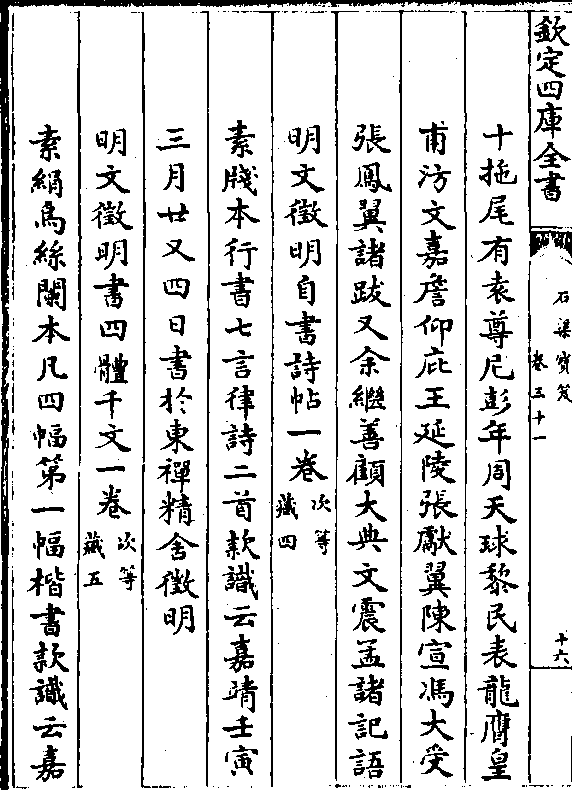 欽定四庫全書
石渠寶笈
卷三十一
十六
十拖尾有袁尊尼彭年周天球黎民表龍膺皇
甫汸文嘉詹仰庇王延陵張獻翼陳宣馮大受
張鳳翼諸跋又余繼善顧大典文震孟諸記語
明文徵明自書詩帖一卷
次等
藏四
素牋本行書七言律詩二首款識云嘉靖壬寅
三月廿又四日書於東禪精舍徵明
明文徵明書四體千文一卷
次等
藏五
素絹烏絲闌本凡四幅第一幅楷書款識云嘉